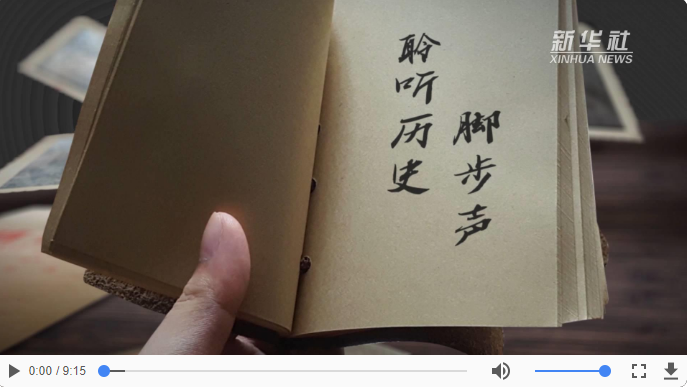 新华社
XINHUA NEWS
聆听历史
脚步声
0:00 / 9:15